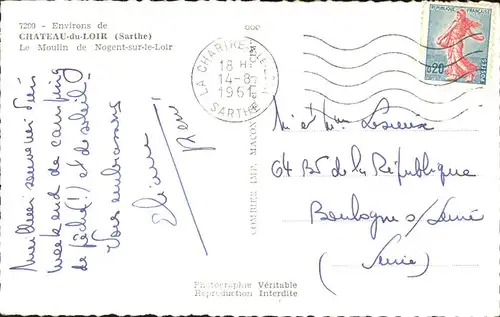 7200 - Environs de
CHATEAU-du-LOIR (Sarthe)
Le Moulin de Nogent-sur-le-Loir
Meilleur souvenir d'un
week end de camping
de pêche (!) et de soleil
Vous embrassons
Eliane
René
LA CHARTRE
18 H
14-8
1961
SARTHE
COMBIER IMP. MACON
REPUBLIQUE FRANÇAISE
0,20
POSTES
M. et Mme
64 Bd de la République
Boulogne s/ Seine
(Seine)
Photographie Véritable
Reproduction Interdite